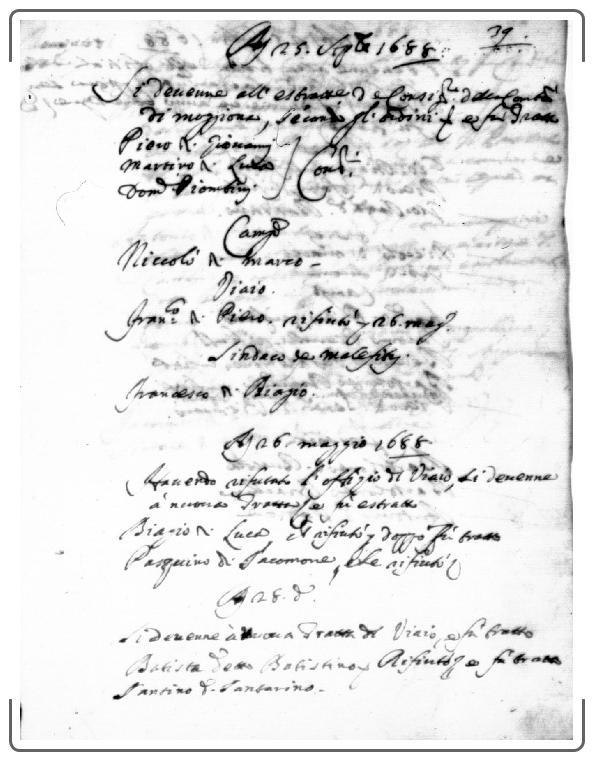 39.
A dì 25. Sgbre 1688.
Si devenne all' estratte de Consi.ri della Com.tà
di moggiona, secondo gl'ordini, e fù tratto
Piero di Giovanni
Martino di Luca } Consi.
Dom.o Piombini
Camp.o
Niccolò di Marco
Viaio.
Fran.co di Piero. rifiutò 26. mag.
Sindaco de malefitij.
Francesco di Biagio.
A dì 26. maggio 1688
Havendo rifiutato l'offizio di Viaio, si devenne
à nuova Tratta, e fù estratto
Biagio di Luca, rifiutò, doppo fù tratto
Pasquino di Jacomone, che rifiutò
A dì 28. do
Si devenne à nuova Tratta di Viaio, e fù tratto
Batista detto Batistino, Rifiutò, e fù tratto
Santino di Santarino.